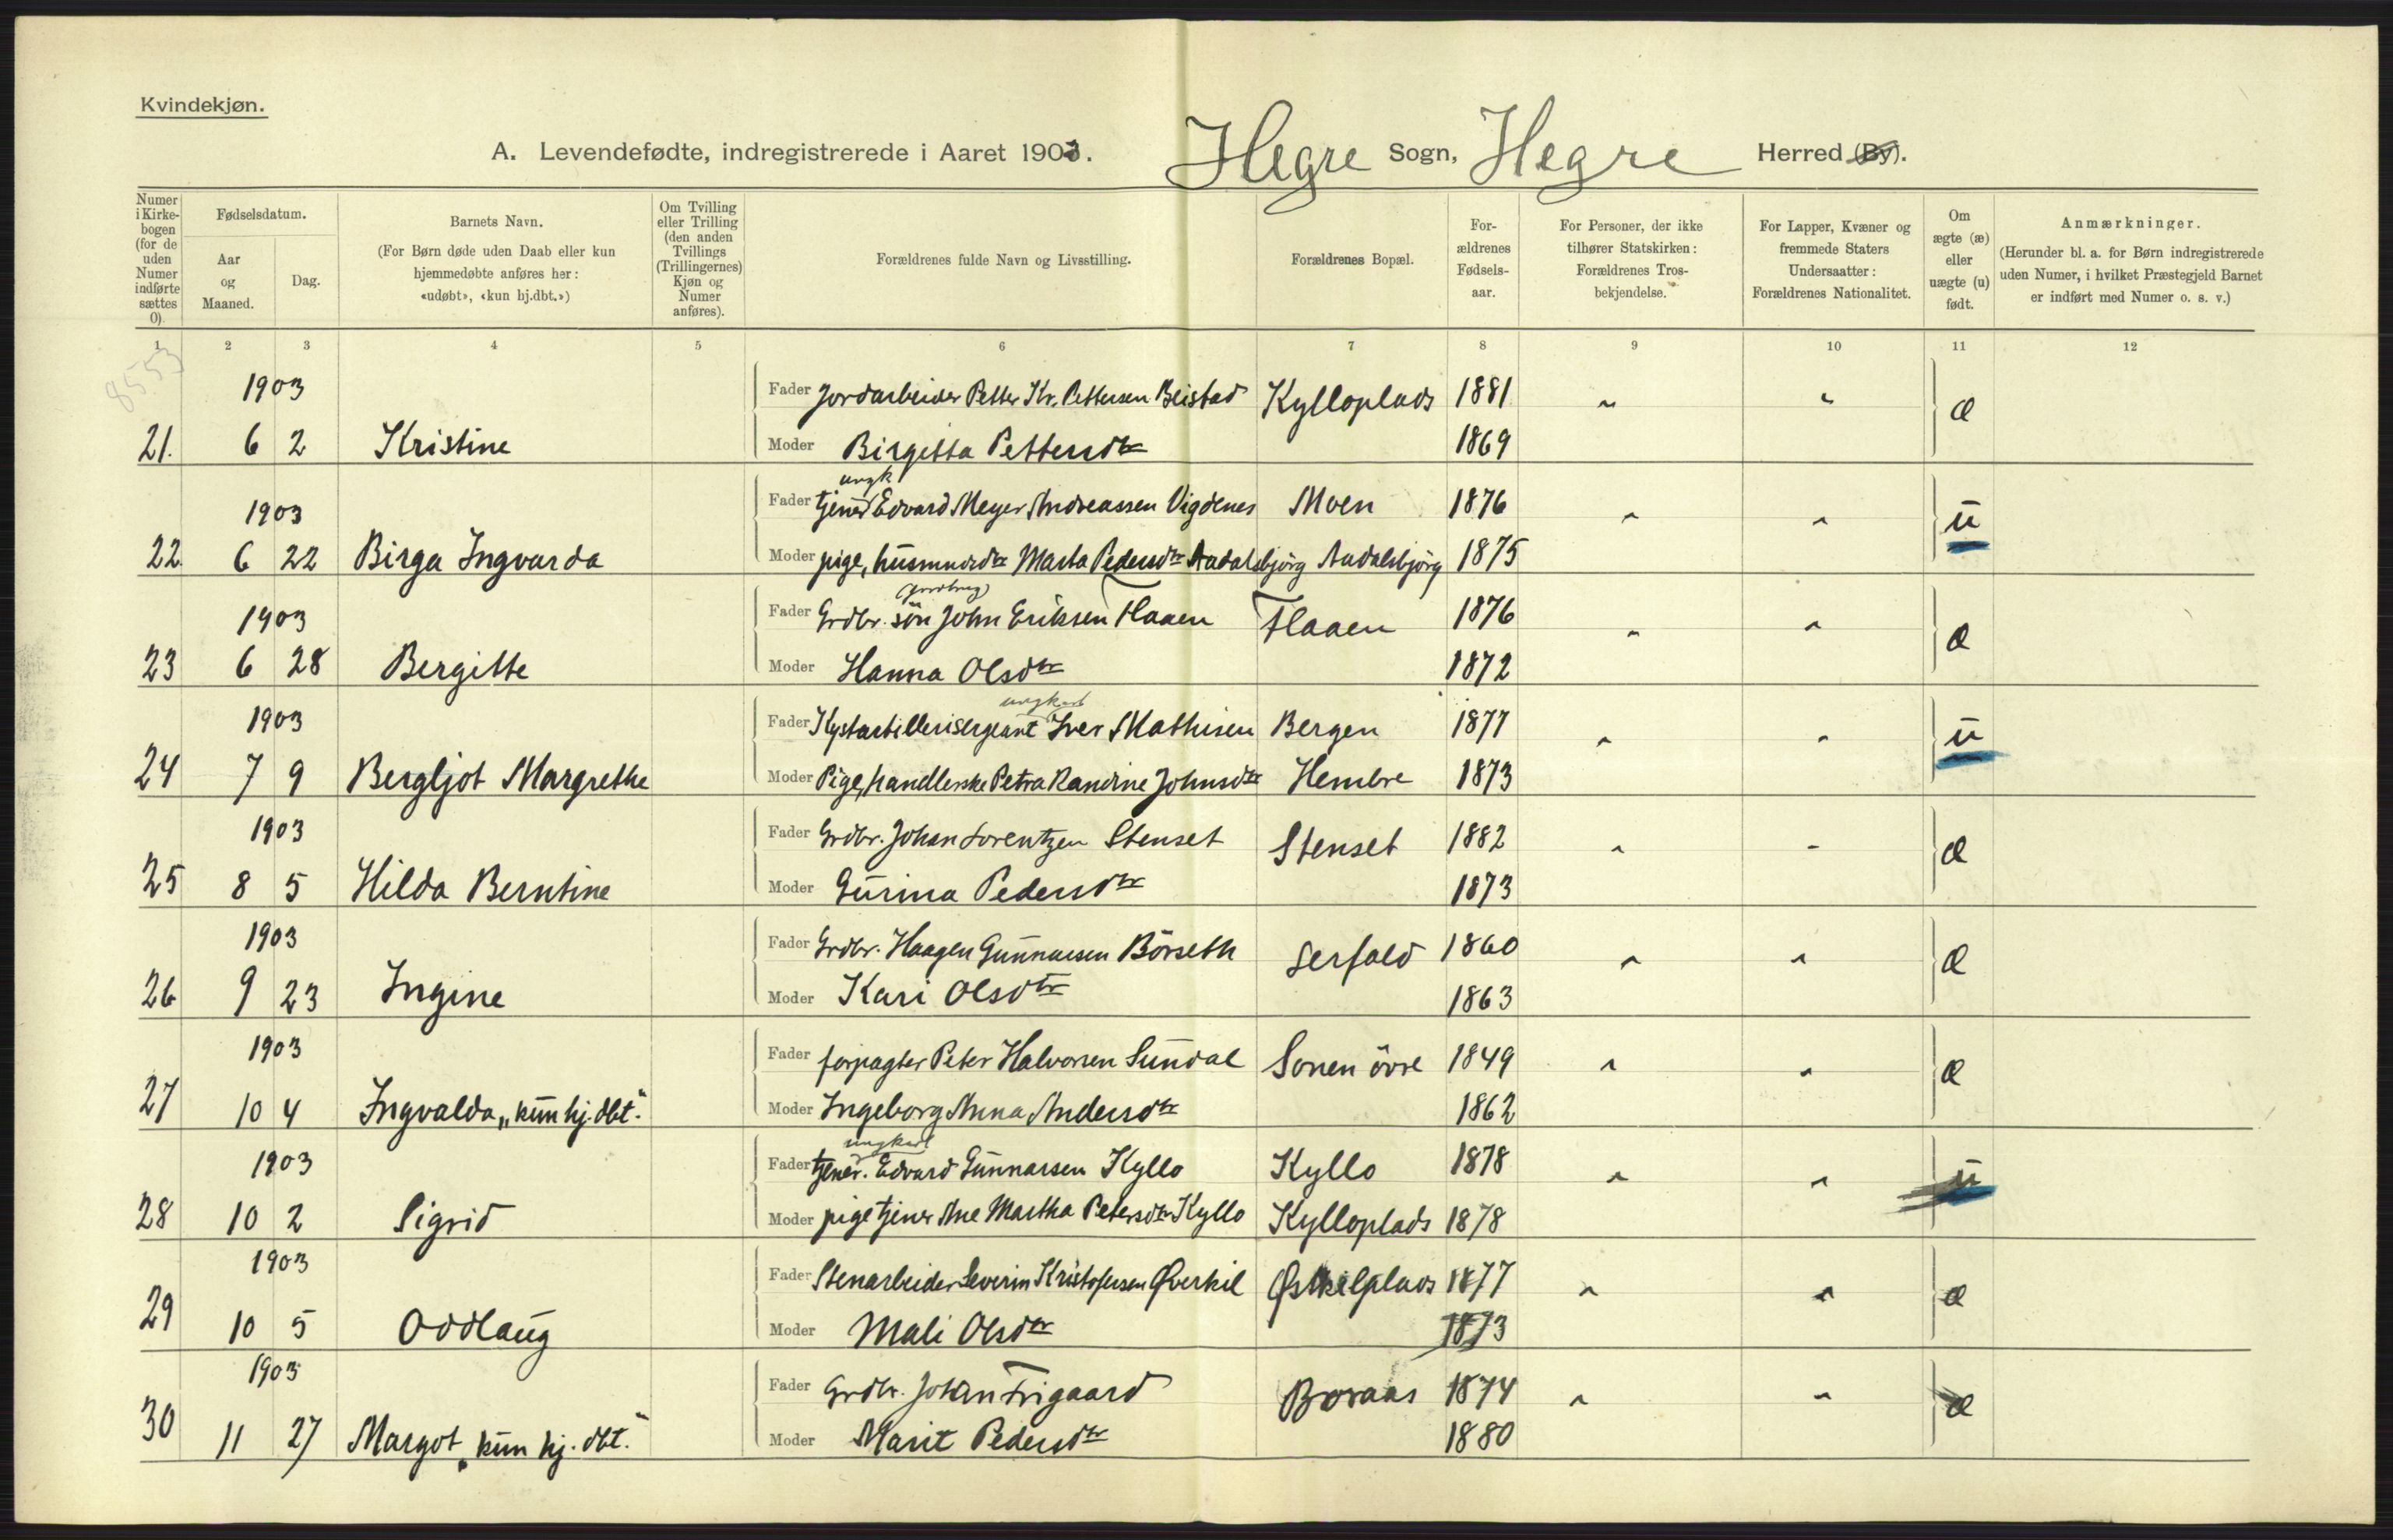 Kvindekjøn.
A. Levendefødte, indregistrerede i Aaret 1903. Hegre Sogn, Hegre Herred (By).
Numer i Kirkebogen (for de uden Numer indførte sættes 0).
Fødselsdatum.
Aar og Maaned.
Dag.
Barnets Navn.
(For Børn døde uden Daab eller kun hjemmedøbte anføres her: «udøbt», «kun hj.dbt.»)
Om Tvilling eller Trilling (den anden Tvillings (Trillingernes) Kjøn og Numer anføres).
Forældrenes fulde Navn og Livsstilling.
Forældrenes Bopæl.
Forældrenes Fødselsaar.
For Personer, der ikke tilhører Statskirken: Forældrenes Trosbekjendelse.
For Lapper, Kvæner og fremmede Staters Undersaatter: Forældrenes Nationalitet.
Om ægte (æ) eller uægte (u) født.
Anmærkninger.
(Herunder bl. a. for Børn indregistrerede uden Numer, i hvilket Præstegjeld Barnet er indført med Numer o. s. v.)
1 2 3 4 5 6 7 8 9 10 11 12
8553
1903 Fader Jordarbeider Petter Kr. Pettersen Beistad Kylloplads 1881 " " æ
21. 6 2 Kristine Moder Birgitta Pettersdtr 1869
ungk
1903 Fader tjener Edvard Meyer Andreassen Vigdenes Moen 1876 " " ū
22. 6 22 Birga Ingvarda Moder pige, husmdtr Marta Pedersdtr Aadalsbjörg Aadalsbjörg 1875
1903 Fader Grdbr. sön John Eriksen Flaaen Flaaen 1876 " " æ
23 6 28 Bergitte Moder Hanna Olsdtr 1872
ungkarl
1903 Fader Kystartillerisergeant Iver Mathisen Bergen 1877 " " ū
24 7 9 Bergljot Margrethe Moder Pige, handlerske Petra Randine Johnsdtr Hembre 1873
1903 Fader Grdbr. Johan Lorentzen Stenset Stenset 1882 " " æ
25 8 5 Hilda Berntine Moder Gurina Pedersdtr 1873
1903 Fader Grdbr. Haagen Gunnarsen Börseth Serfald 1860 " " æ
26 9 23 Ingine Moder Kari Olsdtr 1863
1903 Fader forpagter Peter Halvorsen Sundal Sonen övre 1849 " " æ
27 10 4 Ingvalda „kun hj. dbt." Moder Ingeborg Anna Andersdtr 1862
ungkarl
1903 Fader tjener. Edvard Gunnarsen Kyllo Kyllo 1878 " " ū
28 10 2 Sigrid Moder pige tjener Ane Martha Petersdtr Kyllo Kylloplads 1878
1903 Fader Stenarbeider Severin Kristofersen Øverkil Østkilplads 1877 " " æ
29 10 5 Oddlaug Moder Mali Olsdtr 1873
1903 Fader Grdbr. Johan Trigaard Boraas 1874 " " æ
30 11 27 Margot „kun hj. dbt." Moder Marit Pedersdtr 1880